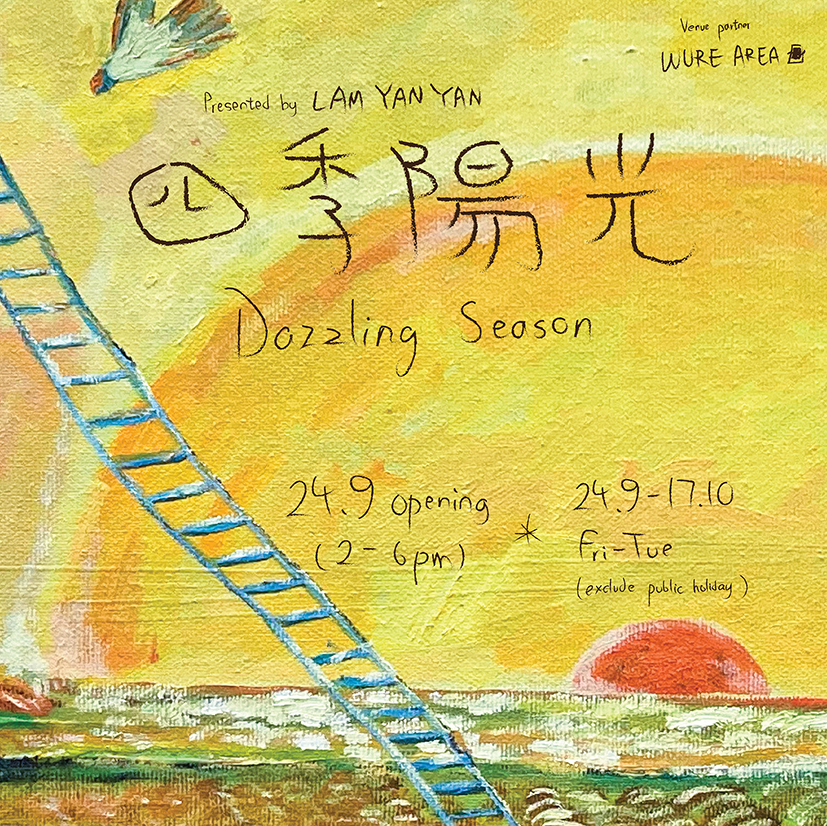 Venue partner
WURE AREA
Presented by LAM YAN YAN
四季陽光
Dazzling Season
24.9 opening
(2-6pm)
*
24.9-17.10
Fri-Tue
(exclude public holiday)